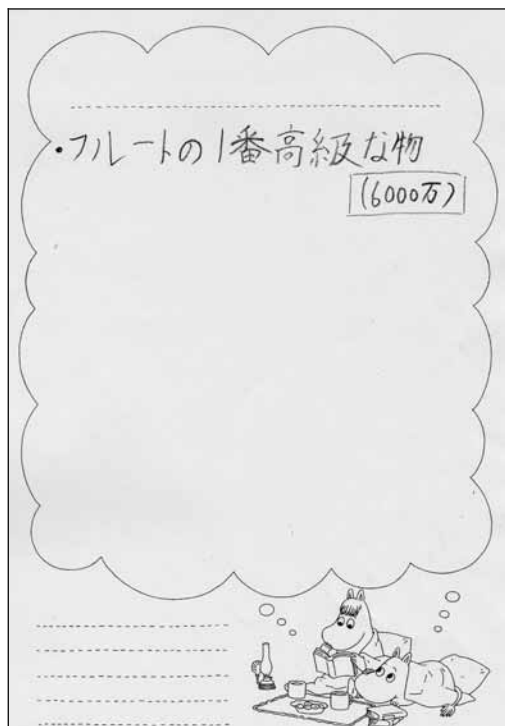 ・フルートの1番高級な物
(6000万)